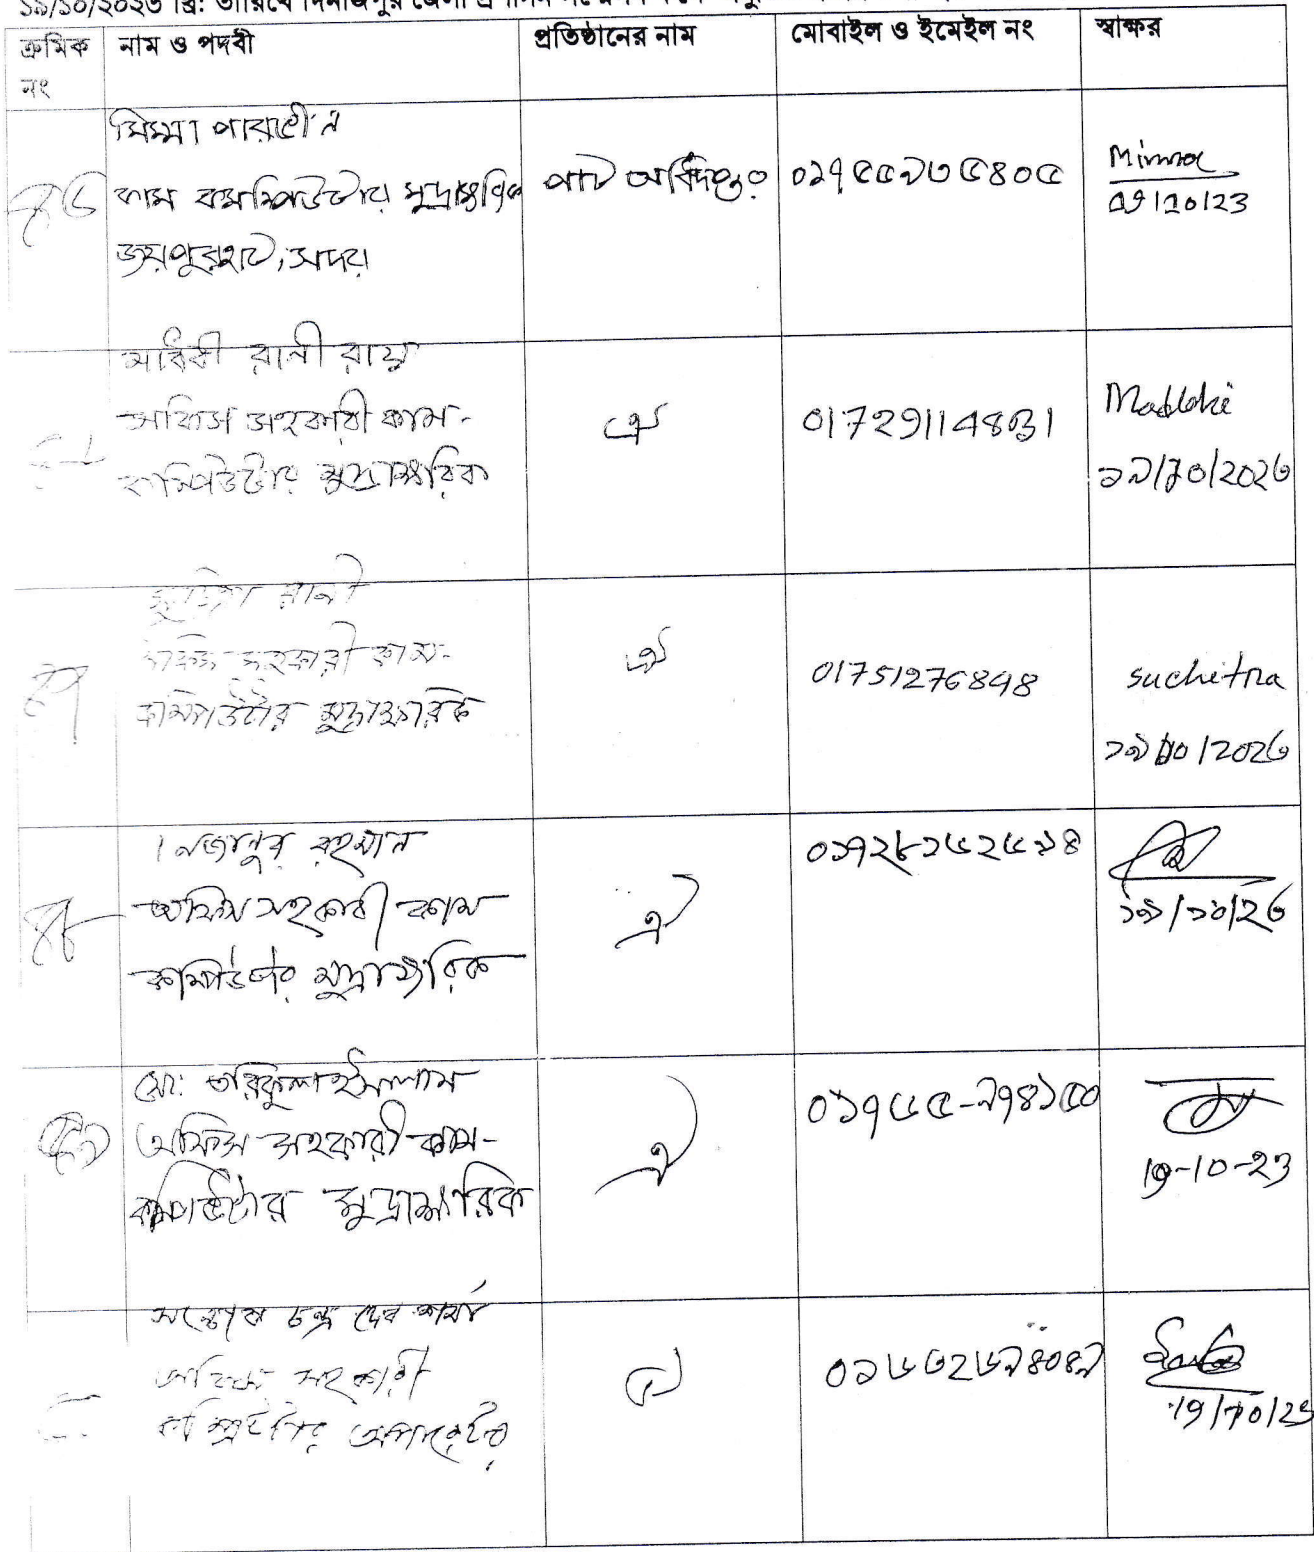 ১৯/১০/২০২৩ খ্রি: তারিখে দিনাজপুর জেলা
ক্রমিক নং
নাম ও পদবী
প্রতিষ্ঠানের নাম
মোবাইল ও ইমেইল নং
স্বাক্ষর
মিম্মা পারভীন
কাম কম্পিউটার মুদ্রাক্ষরিক
জয়পুরহাট, সদর
পাট অধিদপ্তর
০১৭৫৫৯৩৫৪০৫
Mimma
মাধবী রানী রায়
অফিস সহকারী কাম-
কম্পিউটার মুদ্রাক্ষরিক
ঐ
Madobi
১৯/১০/২০২৩
সুচিত্রা রানী
অফিস সহকারী কাম-
কম্পিউটার মুদ্রাক্ষরিক
ঐ
01751276848
suchitra
১৯/১০/২০২৩
৪৮
মিজানুর রহমান
অফিস সহকারী কাম
কম্পিউটার মুদ্রাক্ষরিক
ঐ
০১৭২৮১৫২৫১৪
১৯/১০/২৩
মো: তরিকুল ইসলাম
অফিস সহকারী কাম-
কম্পিউটার মুদ্রাক্ষরিক
ঐ
19-10-23
সন্তোষ চন্দ্র দেব শর্মা
অফিস সহকারী
কম্পিউটার অপারেটর
ঐ
19/10/23